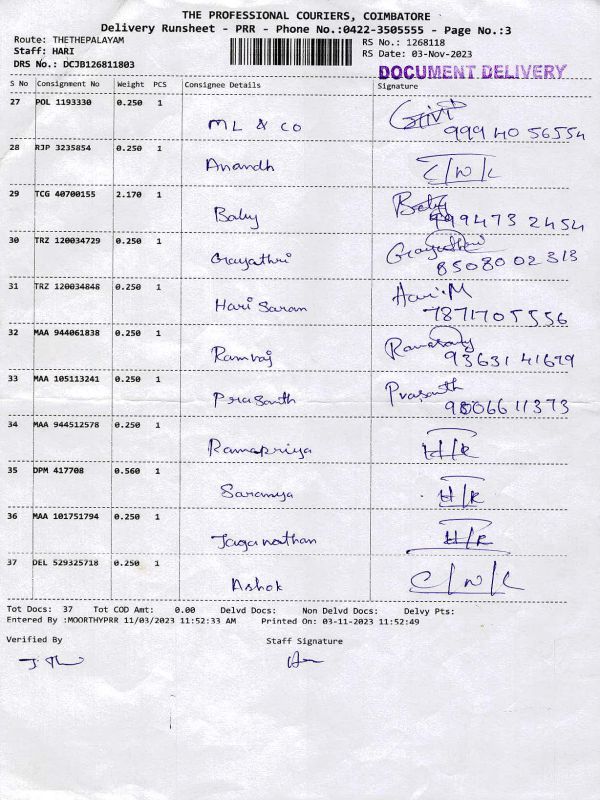 THE PROFESSIONAL COURIERS, COIMBATORE
Delivery Runsheet - PRR - Phone No.:0422-3505555 - Page No.:3
Route: THETHEPALAYAM RS No.: 1268118
Staff: HARI RS Date: 03-Nov-2023
DRS No.: DCJB126811803
DOCUMENT DELIVERY
S No Consignment No Weight PCS Consignee Details Signature
27 POL 1193330 0.250 1
ML & CO 999 40 56554
28 RJP 3235854 0.250 1
Anandh C/N/L
29 TCG 40700155 2.170 1
Baby Baby 999473 2454
30 TRZ 120034729 0.250 1
Gayathri Gayathri 85080 02313
31 TRZ 120034848 0.250 1
Hari Saran Hari.M 7871705556
32 MAA 944061838 0.250 1
Ramraj 93631 41679
33 MAA 105113241 0.250 1
Prasanth Prasanth 98066 11373
34 MAA 944512578 0.250 1
Ramapriya H/R
35 DPM 417708 0.560 1
Saranya H/R
36 MAA 101751794 0.250 1
Jaganathan H/R
37 DEL 529325718 0.250 1
Ashok C/N/L
Tot Docs: 37 Tot COD Amt: 0.00 Delvd Docs: Non Delvd Docs: Delvy Pts:
Entered By :MOORTHYPRR 11/03/2023 11:52:33 AM Printed On: 03-11-2023 11:52:49
Verified By Staff Signature